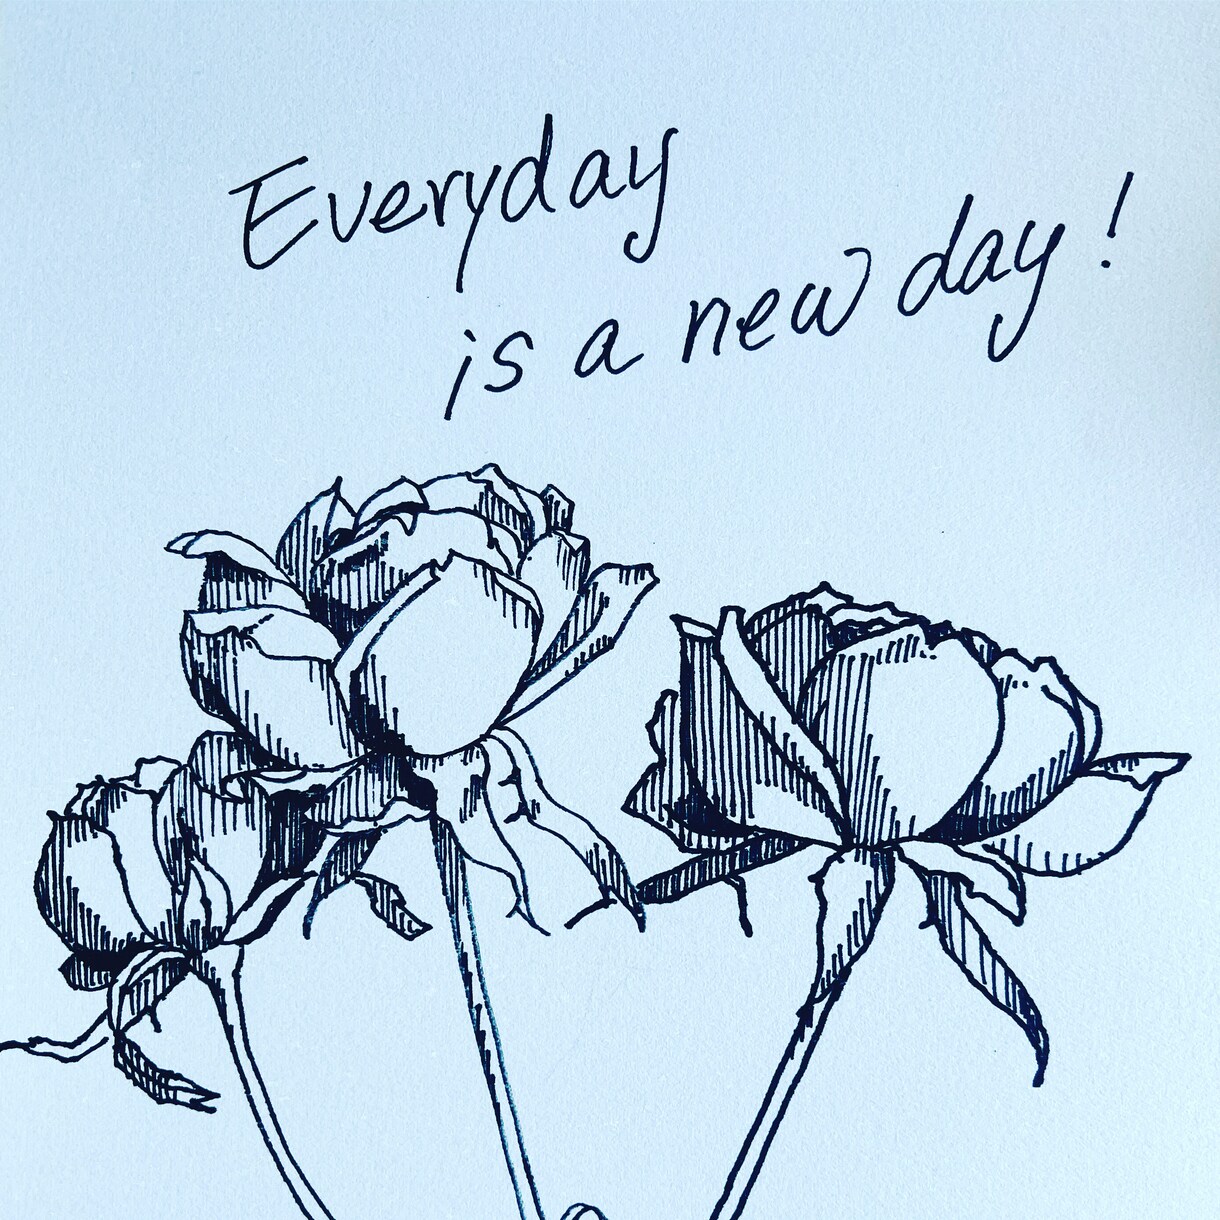 Everyday
is a new day!